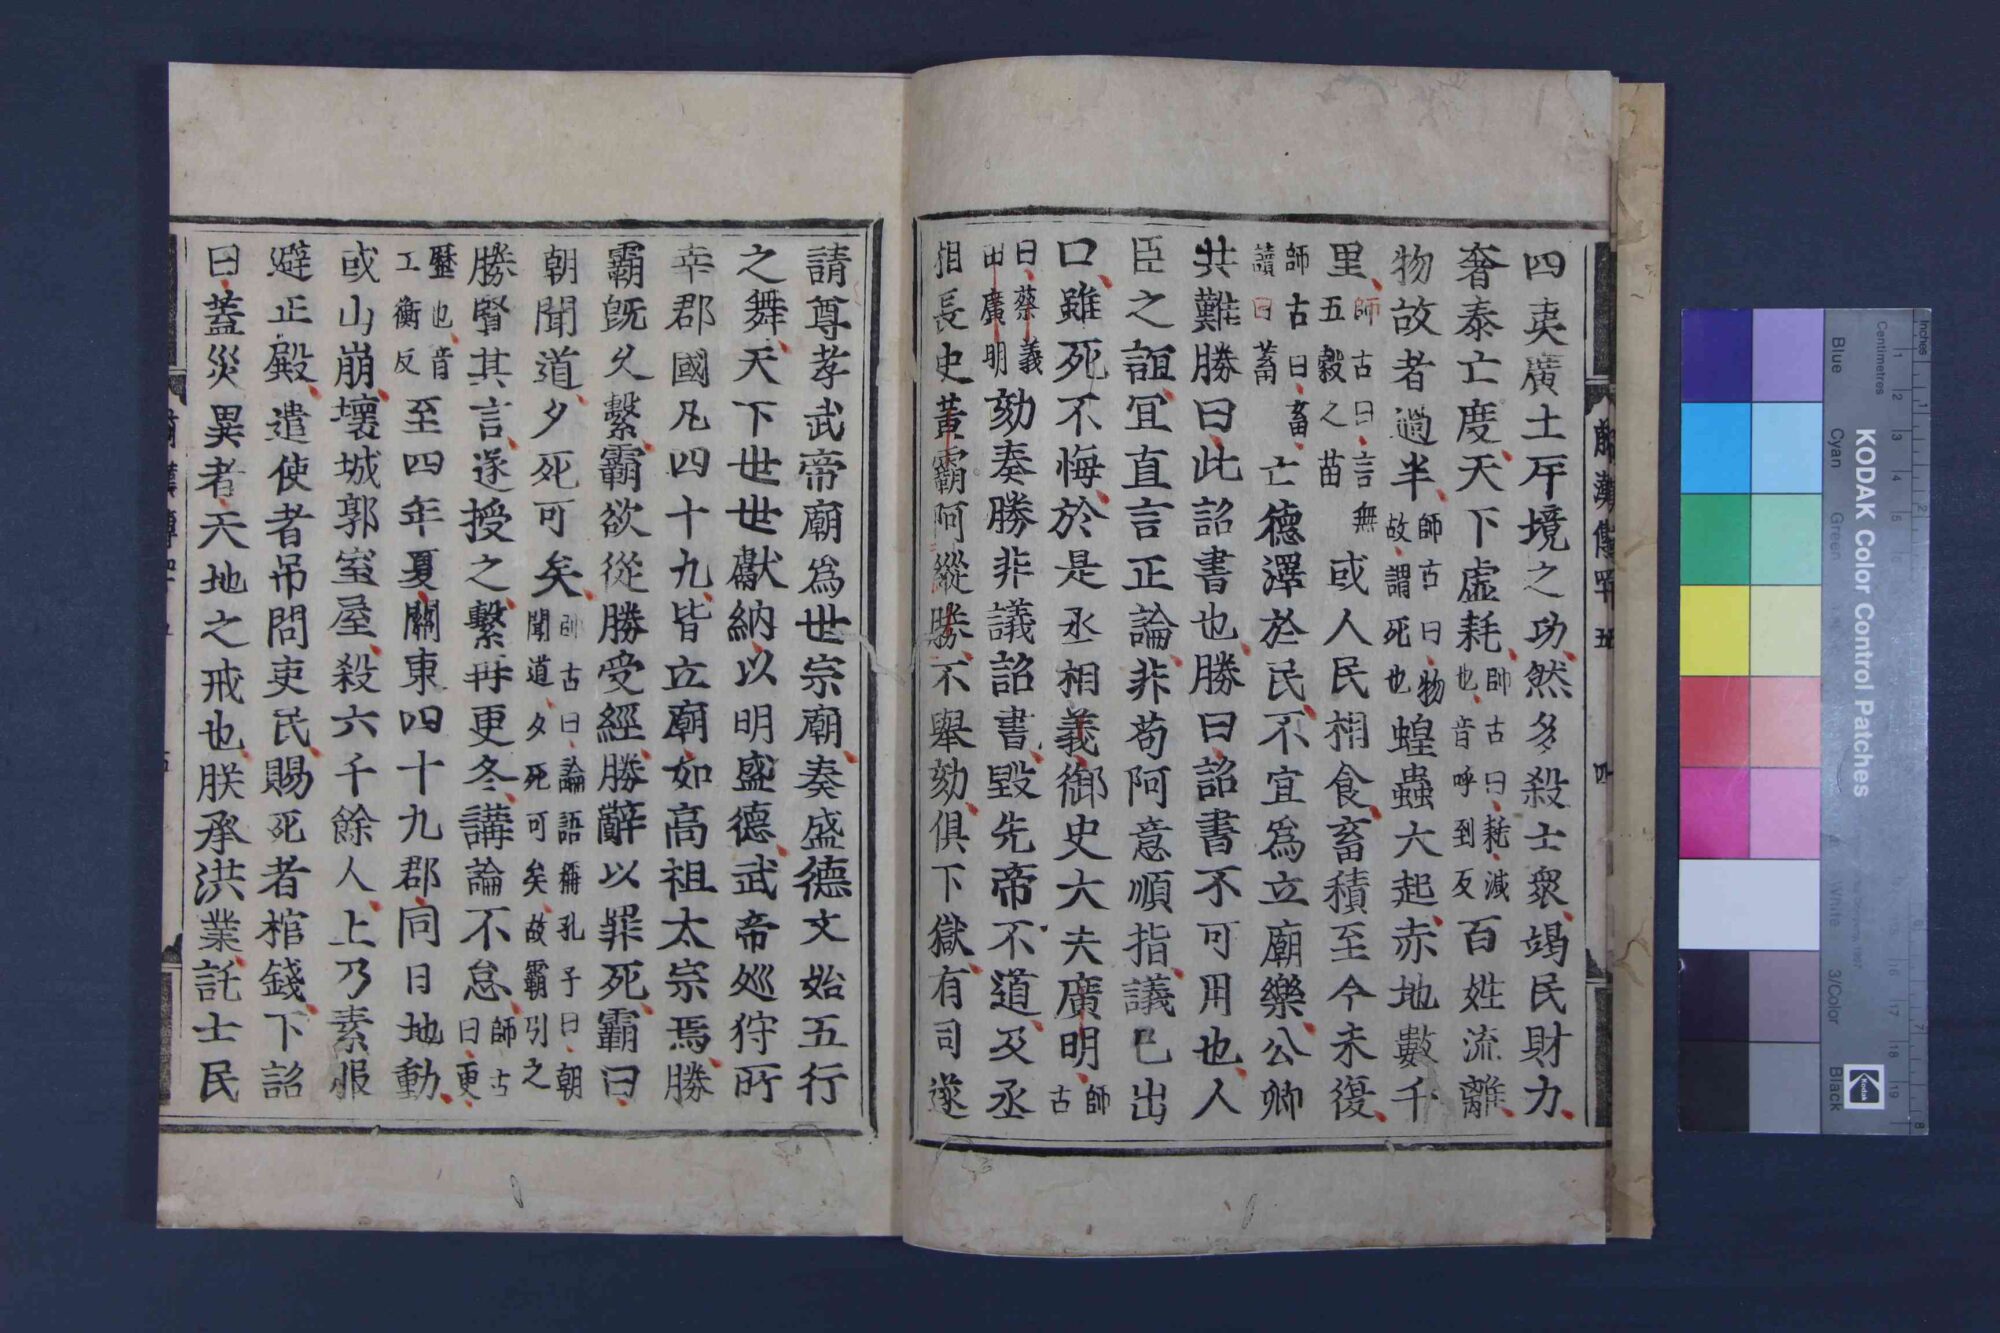 前漢傳罕五 四
四夷廣土斥境之功然多殺士衆竭民財力
奢泰亡度天下虛耗師古曰耗減也音呼到反百姓流離
物故者過半師古曰物故謂死也蝗蟲大起赤地數千
里師古曰言無五穀之苗或人民相食畜積至今未復
師古曰畜讀曰蓄亡德澤於民不宜爲立廟樂公卿
共難勝曰此詔書也勝曰詔書不可用也人
臣之誼宜直言正論非苟阿意順指議已出
口雖死不悔於是丞相義御史大夫廣明師古
曰蔡義田廣明劾奏勝非議詔書毀先帝不道及丞
相長史黃霸阿縱勝不舉劾俱下獄有司遂
請尊孝武帝廟爲世宗廟奏盛德文始五行
之舞天下世世獻納以明盛德武帝廵狩所
幸郡國凡四十九皆立廟如高祖太宗焉勝
霸旣久繫霸欲從勝受經勝辭以罪死霸曰
朝聞道夕死可矣師古曰論語稱孔子曰朝聞道夕死可矣故霸引之
勝賢其言遂授之繫再更冬講論不怠師古曰更
歷也音工衡反至四年夏關東四十九郡同日地動
或山崩壞城郭室屋殺六千餘人上乃素服
避正殿遣使者吊問吏民賜死者棺錢下詔
曰蓋災異者天地之戒也朕承洪業託士民
KODAK Color Control Patches
Blue
Cyan
Green
White
3/Color
Black
Inches
Centimetres
Kodak